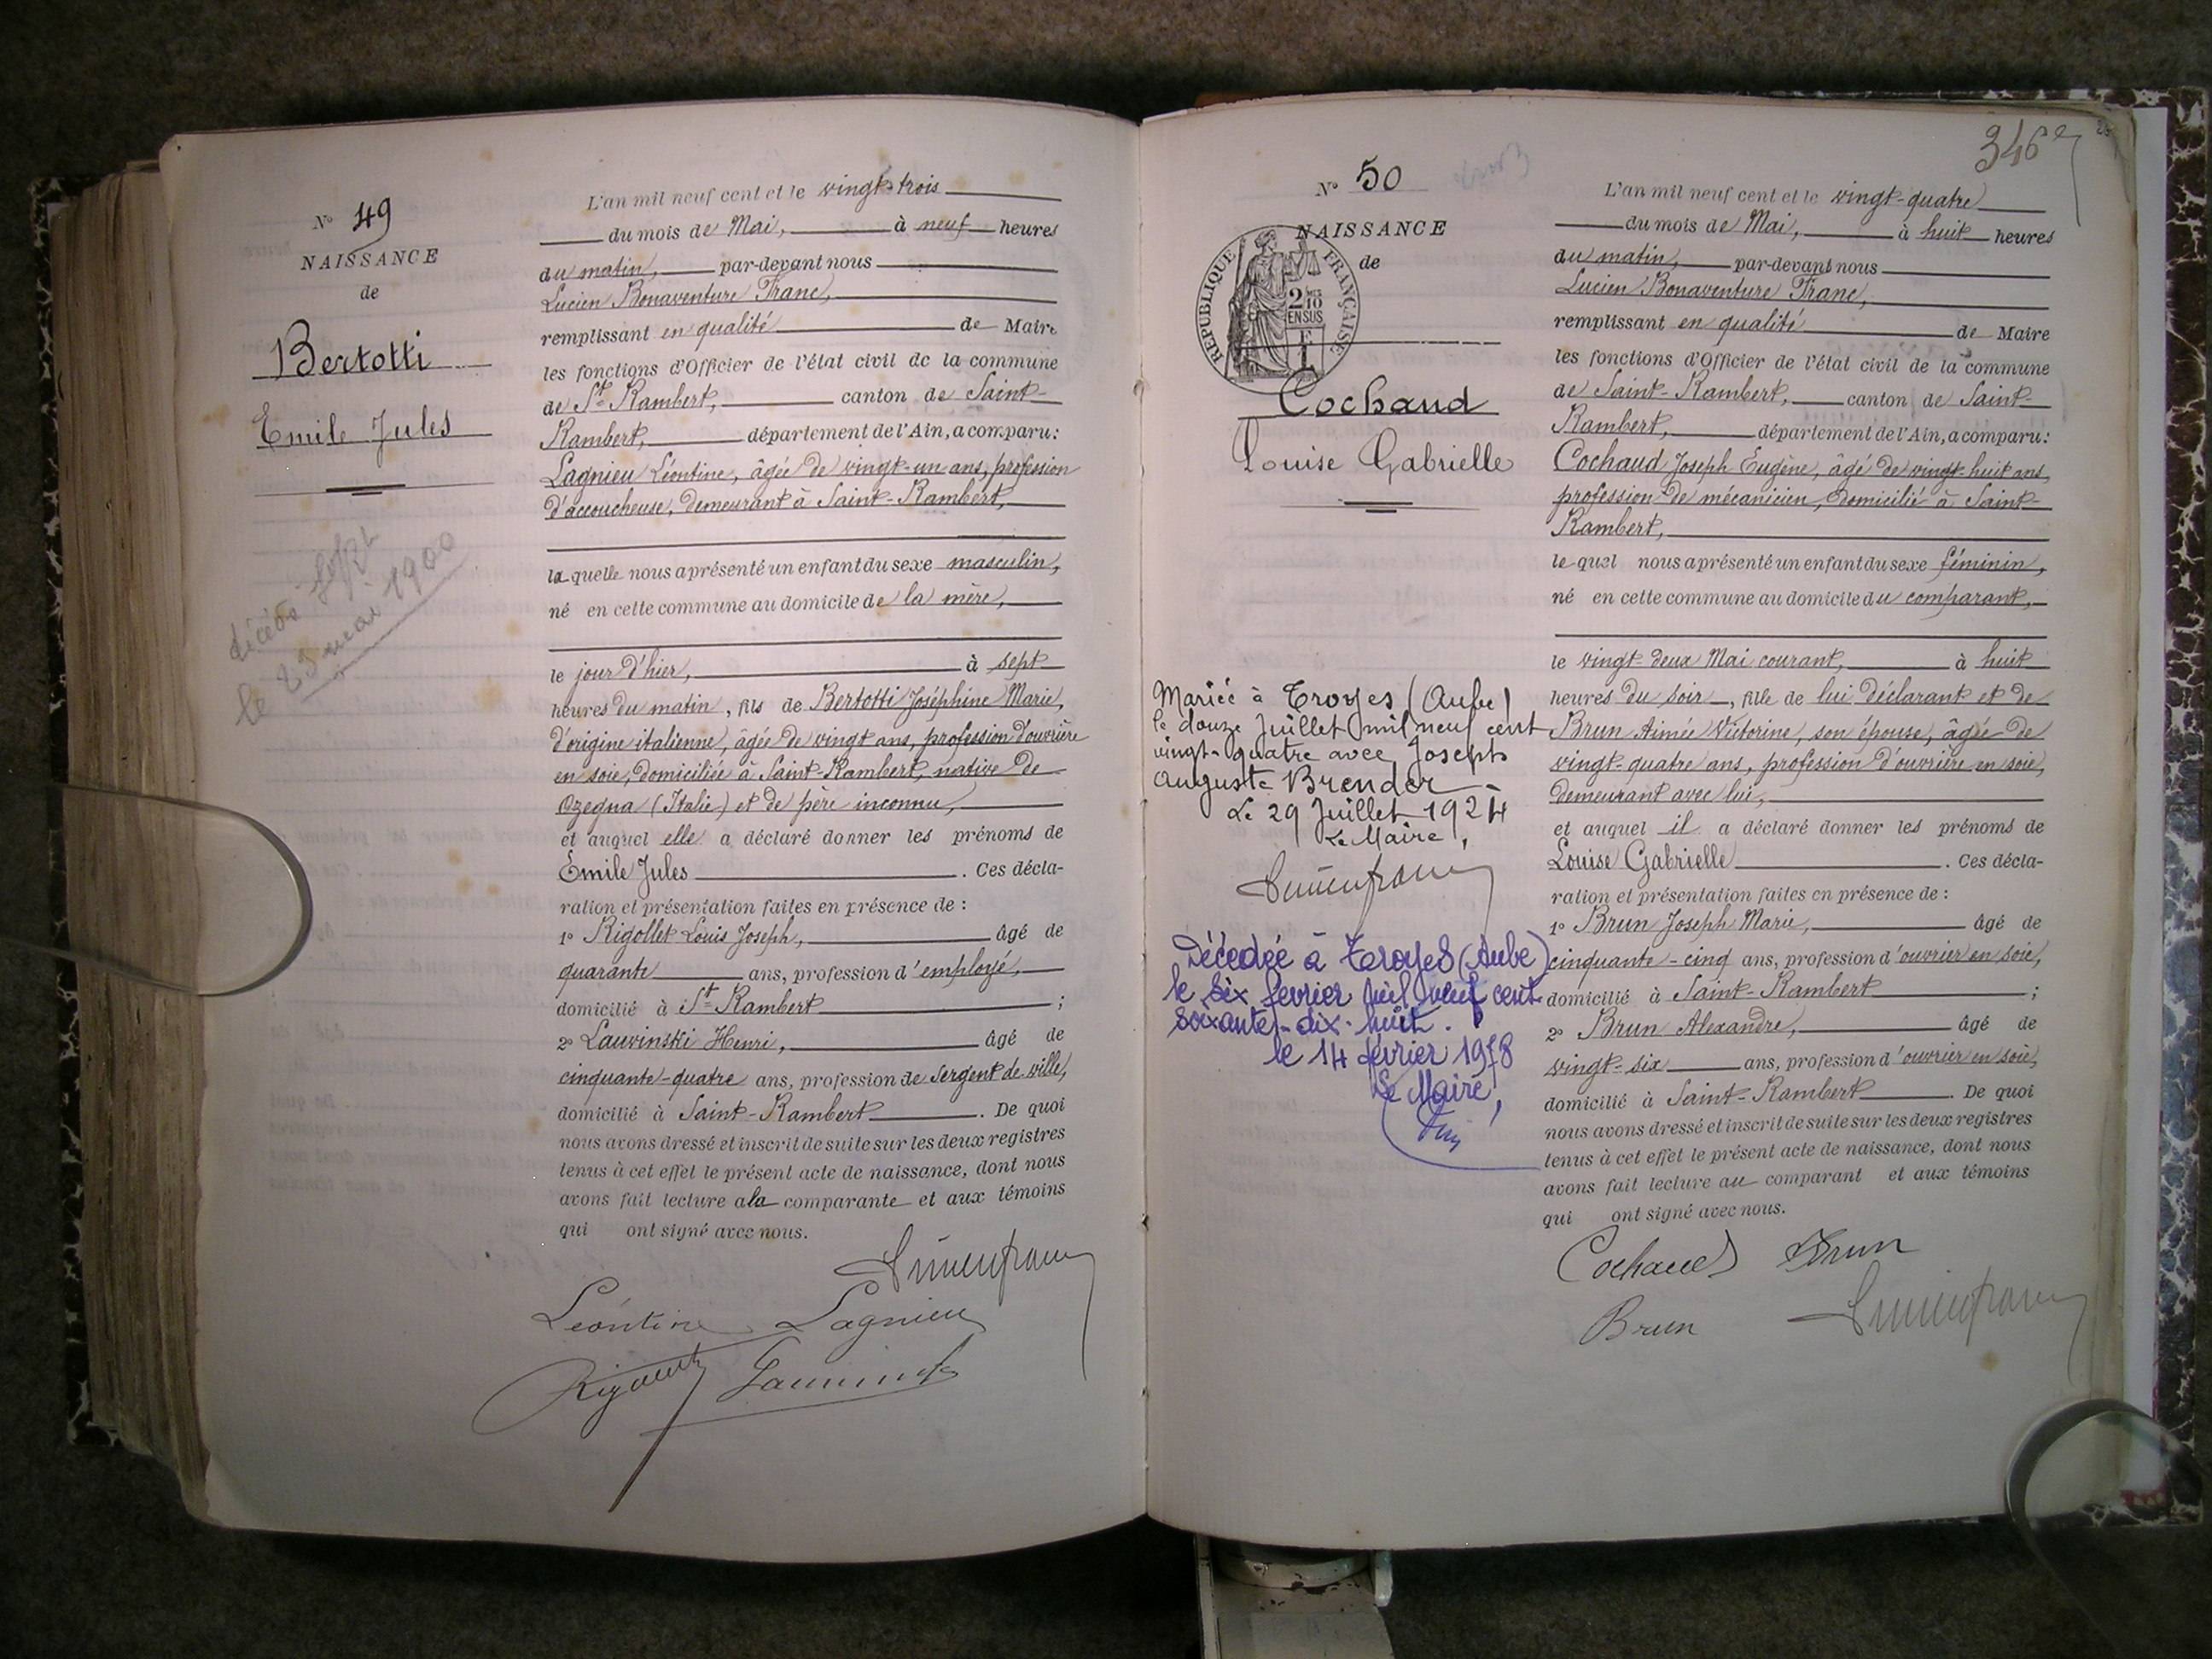 Nº 49
NAISSANCE
de
Bertotti
Emile Jules
décédé
le 23 mai 1900
L'an mil neuf cent et le vingt-trois
du mois de Mai, à neuf heures
du matin, par-devant nous
Lucien Bonaventure Franc,
remplissant en qualité de Maire
les fonctions d'Officier de l'état civil de la commune
de St Rambert, canton de Saint-
Rambert, département de l'Ain, a comparu:
Lagnieu Léontine, âgée de vingt-un ans, profession
d'accoucheuse, demeurant à Saint-Rambert,
laquelle nous a présenté un enfant du sexe masculin,
né en cette commune au domicile de la mère,
le jour d'hier, à sept
heures du matin, fils de Bertotti Joséphine Marie,
d'origine italienne, âgée de vingt ans, profession d'ouvrière
en soie, domiciliée à Saint-Rambert, native de
Ozegna (Italie) et de père inconnu,
et auquel elle a déclaré donner les prénoms de
Emile Jules. Ces décla-
ration et présentation faites en présence de :
1º Rigollet Louis Joseph, âgé de
quarante ans, profession d'employé,
domicilié à St Rambert ;
2º Lauvinski Henri, âgé de
cinquante-quatre ans, profession de Sergent de ville,
domicilié à Saint-Rambert. De quoi
nous avons dressé et inscrit de suite sur les deux registres
tenus à cet effet le présent acte de naissance, dont nous
avons fait lecture a la comparante et aux témoins
qui ont signé avec nous.
Léontine Lagnieu
346
Nº 50
NAISSANCE
de
REPUBLIQUE FRANÇAISE
2/10
EN SUS
Cochaud
Louise Gabrielle
Mariée à Troyes (Aube)
le douze Juillet mil neuf cent
vingt-quatre avec Joseph
Auguste Brender -
Le 29 Juillet 1924
Le Maire,
Décédée à Troyes (Aube)
le six février mil neuf cent
soixante-dix-huit.
le 14 février 1978
Le Maire,
L'an mil neuf cent et le vingt-quatre
du mois de Mai, à huit heures
du matin, par-devant nous
Lucien Bonaventure Franc,
remplissant en qualité de Maire
les fonctions d'Officier de l'état civil de la commune
de Saint-Rambert, canton de Saint-
Rambert, département de l'Ain, a comparu:
Cochaud Joseph Eugène, âgé de vingt-huit ans,
profession de mécanicien, domicilié à Saint-
Rambert,
lequel nous a présenté un enfant du sexe féminin,
né en cette commune au domicile du comparant,
le vingt-deux Mai courant, à huit
heures du soir, fille de lui déclarant et de
Brun Aimée Victorine, son épouse, âgée de
vingt-quatre ans, profession d'ouvrière en soie,
demeurant avec lui,
et auquel il a déclaré donner les prénoms de
Louise Gabrielle. Ces décla-
ration et présentation faites en présence de :
1º Brun Joseph Marie, âgé de
cinquante-cinq ans, profession d'ouvrier en soie,
domicilié à Saint-Rambert ;
2º Brun Alexandre, âgé de
vingt-six ans, profession d'ouvrier en soie,
domicilié à Saint-Rambert. De quoi
nous avons dressé et inscrit de suite sur les deux registres
tenus à cet effet le présent acte de naissance, dont nous
avons fait lecture au comparant et aux témoins
qui ont signé avec nous.
Cochaud Brun
Brun